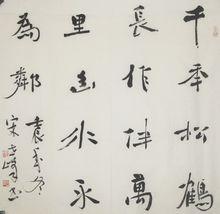 千年松鶴
長作伴萬
里山水永
為鄰
冬
宋